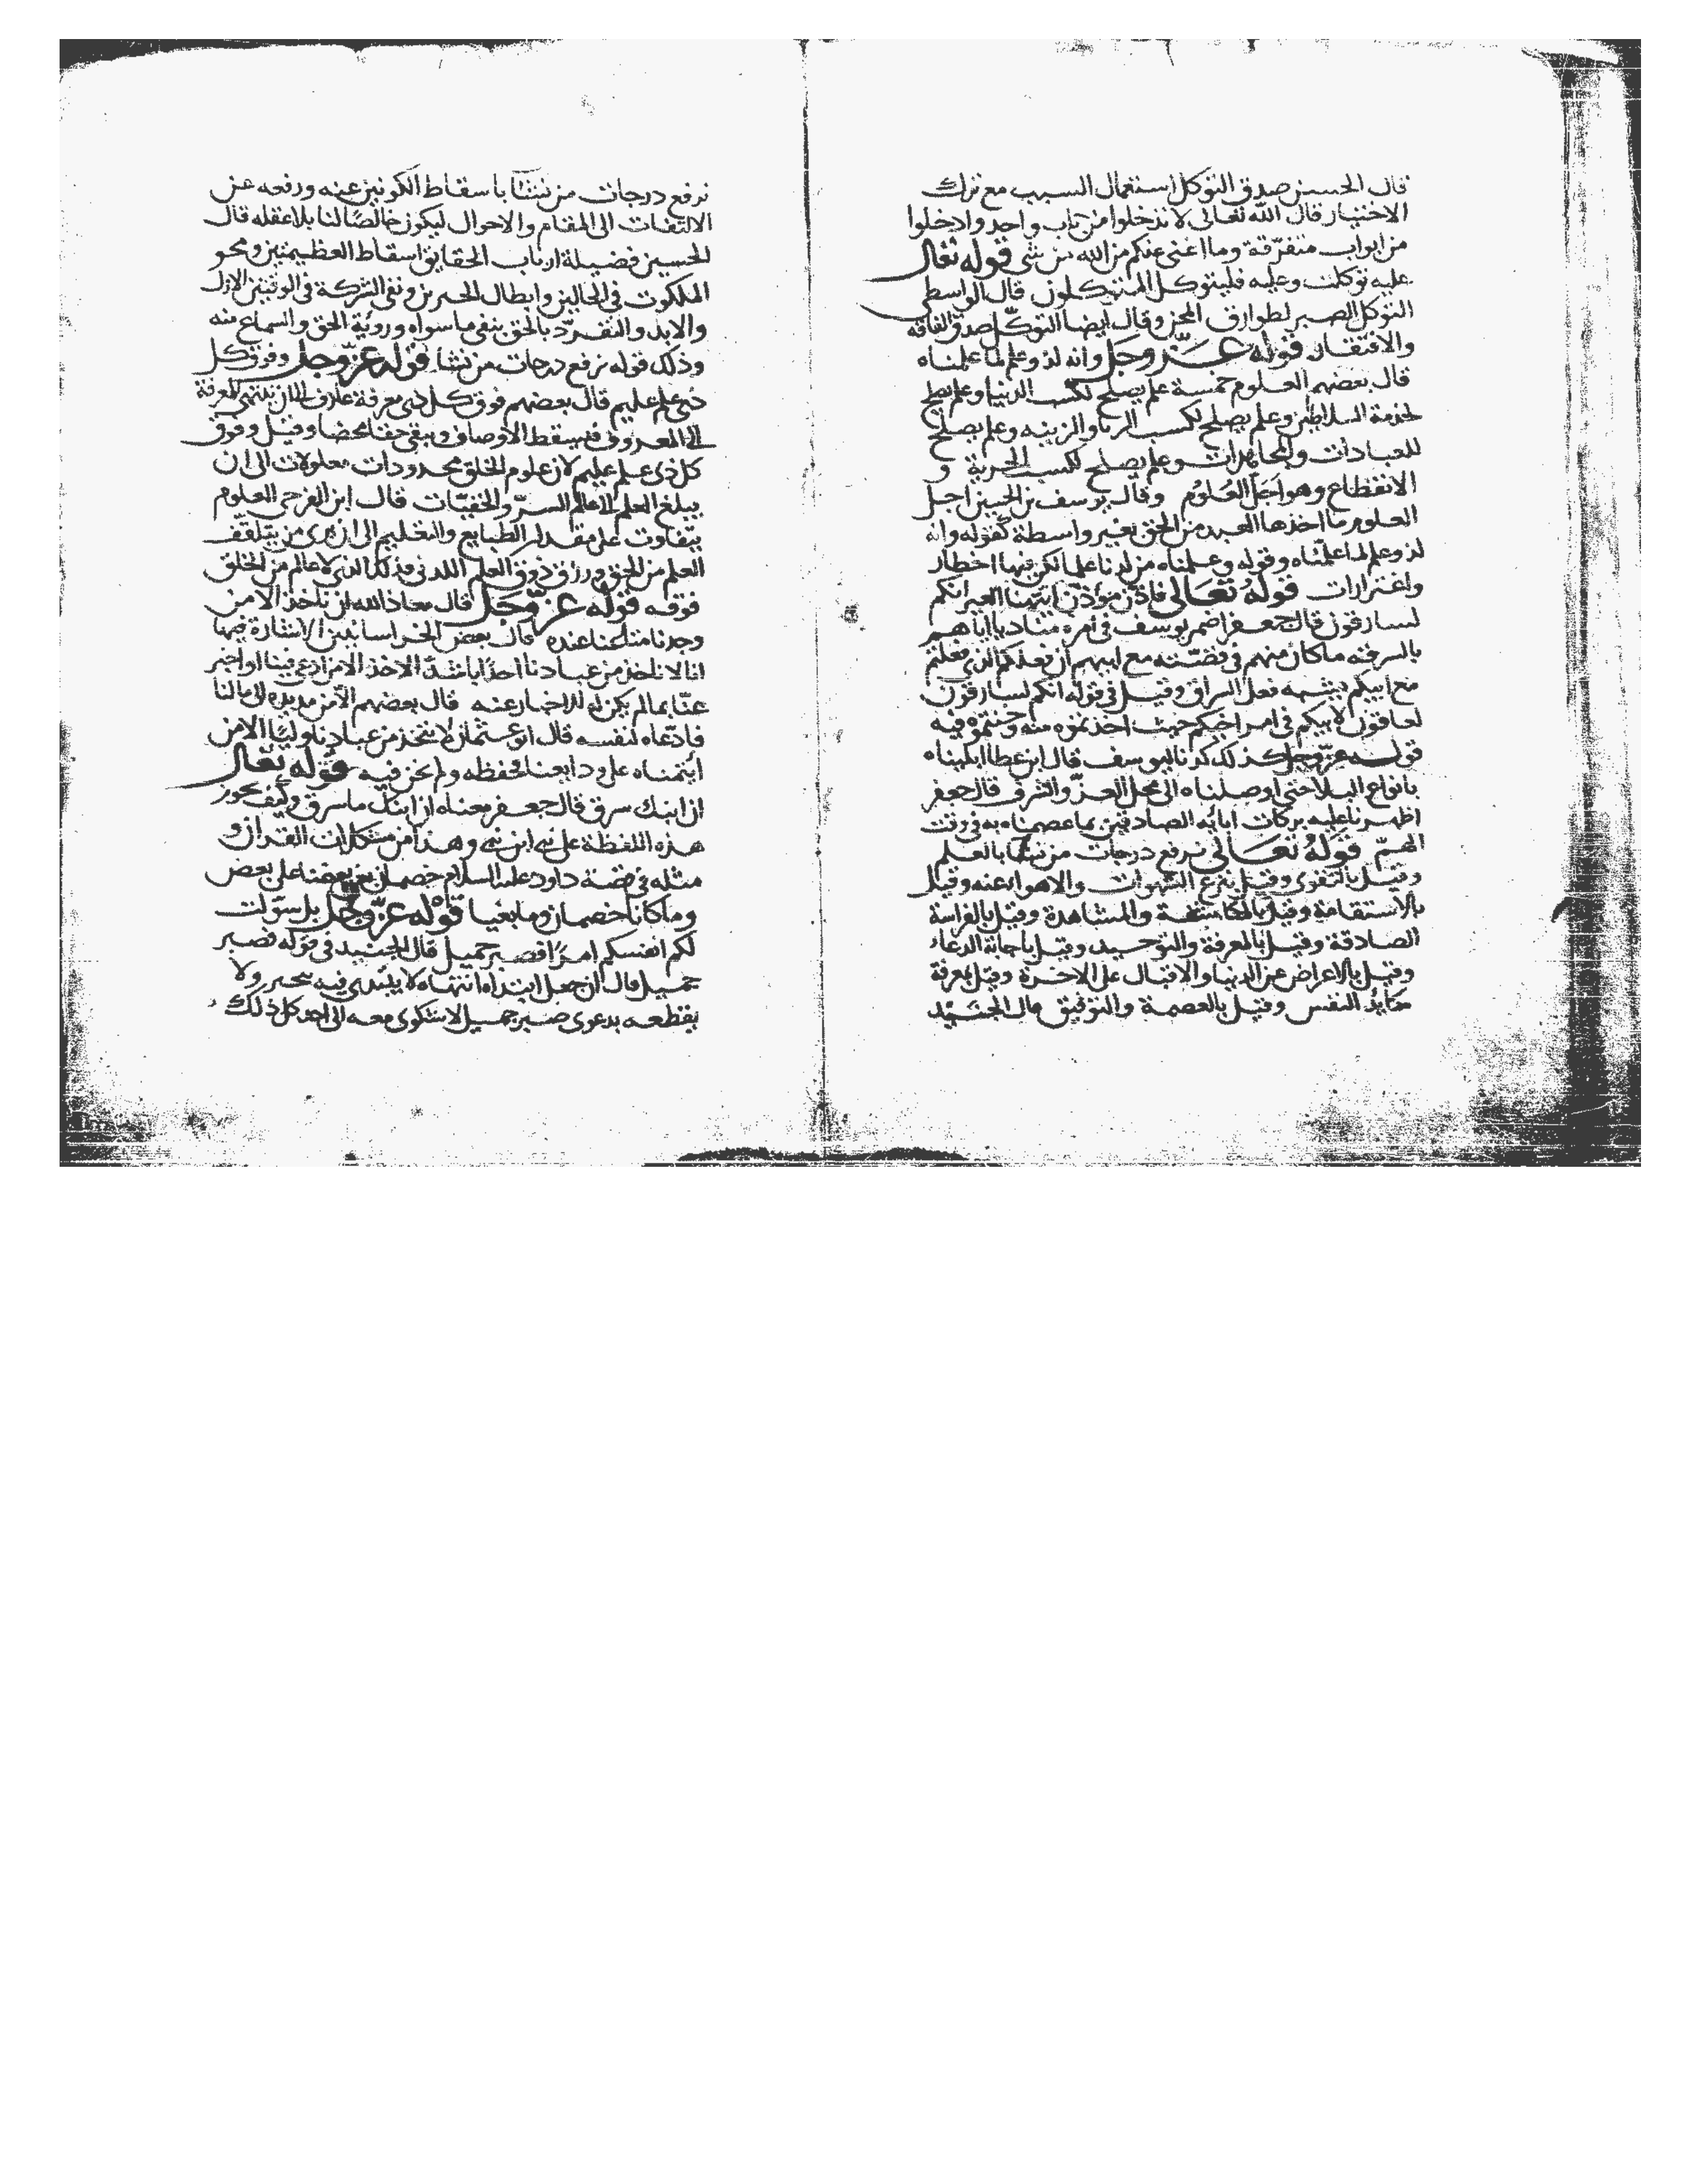 قال الحسين صدق التوكل استعمال السبب مع ترك
الاختيار قال الله تعالى لا تدخلوا من باب واحد وادخلوا
من ابواب متفرقة وما اغنى عنكم من الله من شي قوله تعالى
عليه توكلت وعليه فليتوكل المتوكلون قال الواسطي
التوكل الصبر لطوارق المحن وقال ايضا التوكل صدق الفاقه
والافتقار قوله عز وجل وانه لذو علم لما علمناه
قال بعضهم العلوم خمسة علم يصلح لكسب الدنيا وعلم يصلح
لخدمة السلاطين وعلم يصلح لكسب الريا والزينه وعلم يصلح
للعبادات والمجاهدات وعلم يصلح لكسب الحرية و
الانقطاع وهو اجل العلوم وقال يوسف بن الحسين اجل
العلوم ما اخذها العبد من الحق بغير واسطة كقوله وانه
لذو علم لما علمناه وقوله وعلمناه من لدنا علما لكن فيها اخطار
واغترارات قوله تعالى فاذن مؤذن ايتها العير انكم
لسارقون قال جعفر اضمر يوسف في امره مناديا اياهم
بالسرقه ما كان منهم في قصته مع ابيهم ان فعلكم الذي فعلتم
مع ابيكم يشبه فعل السراق وقيل في قوله انكم لسارقون
لعاقون لابيكم في امر اخيكم حيث اخذتموه منه وخنتموه فيه
قوله عز وجل كذلك كدنا ليوسف قال ابن عطا ابليناه
بانواع البلا حتى اوصلناه الى محل العز والشرف قال جعفر
اظهرنا عليه بركات ابائه الصادقين بما عصمناه به في وقت
الهم قوله تعالى نرفع درجات من نشا بالعلم
وقيل بالتقوى وقيل بنزع الشهوات والاهواء عنه وقيل
بالاستقامة وقيل بالمكاشفة والمشاهدة وقيل بالفراسة
الصادقة وقيل بالمعرفة والتوحيد وقيل باجابة الدعاء
وقيل بالاعراض عن الدنيا والاقبال على الاخرة وقيل بمعرفة
مكايد النفس وقيل بالعصمة والتوفيق قال الجنيد
نرفع درجات من نشا باسقاط الكونين عنه ورفعه عن
الالتفات الى المقام والاحوال ليكون خالصا لنا بلا عقله قال
الحسين فضيلة ارباب الحقايق اسقاط العظيمتين ومحو
الملكوت في الحالين وابطال الخبرين ونفى الشركة في الوقتين الازل
والابد والتفرد بالحق بنفى ما سواه ورؤية الحق والسماع منه
وذلك قوله نرفع درجات من نشا قوله عز وجل وفوق كل
ذى علم عليم قال بعضهم فوق كل ذى معرفة عارف الى ان تنتهى المعرفة
الى المعروف فيسقط الاوصاف ويبقى حقا محضا وقيل وفوق
كل ذى علم عليم لان علوم الخلق محدودات معلولات الى ان
يبلغ العلم الى عالم السر والخفيات قال ابن الفرحى العلوم
يتفاوت على مقدار الطبايع والتعليم الى ان يرى من يتلقف
العلم من الحق ورزق ذوق العلم اللدنى فذلك الذى لا عالم من الخلق
فوقه قوله عز وجل قال معاذ الله ان ناخذ الا من
وجدنا متاعنا عنده قال بعض الخراسانيين الاشارة فيها
انا لا ناخذ من عبادنا احدا باشد الاخذ الا من ادعى فينا او اخبر
عنا بما لم يكن له الاخبار عنه قال بعضهم الا من مد يده الى ما لنا
فادعاه لنفسه قال ابو عثمان لا نتخذ من عبادنا وليا الا من
ايتمناه على ودايعنا فحفظه ولم يخن فيه قوله تعالى
ان ابنك سرق قال جعفر معناه ان ابنك ما سرق وكيف يجوز
هذه اللفظة على نبي ابن نبي وهذا من مشكلات القران و
مثله في قصة داود عليه السلام خصمان بغى بعضنا على بعض
وما كانا خصمان وما بغيا قوله عز وجل بل سولت
لكم انفسكم امرا فصبر جميل قال الجنيد في قوله فصبر
جميل قال ان جعل ابتداه انتهاه لا يبتدى فيه بتحير ولا
يقطعه بدعوى صبر جميل لا شكوى معه الى احد كل ذلك